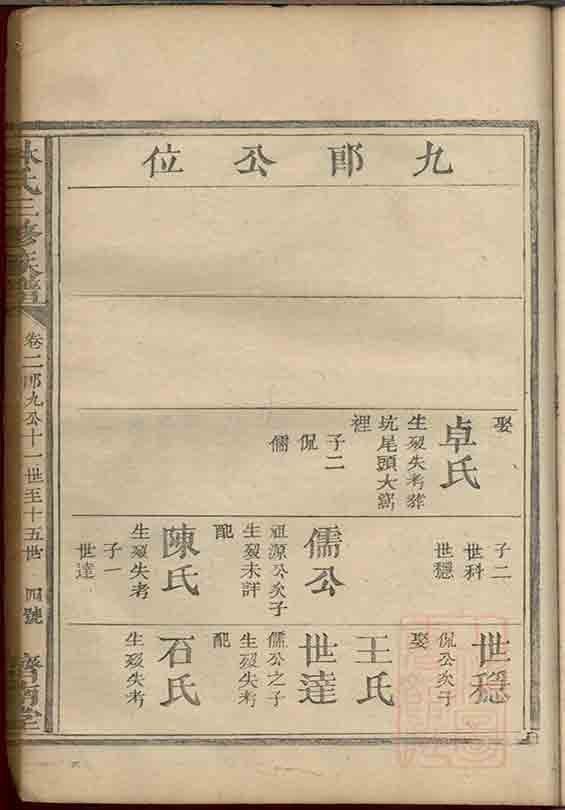 九郎公位
娶
卓氏
生歿失考葬
坑尾頭大窩
裡
子二
侃
儒
子二
世科
世穩
儒公
祖源公次子
生歿未詳
配
陳氏
生歿失考
子一
世達
世穩
侃公次子
娶
王氏
世達
儒公之子
生歿失考
配
石氏
生歿失考
林氏三修族譜
卷二郎九公十一世至十五世
四號
齊南堂